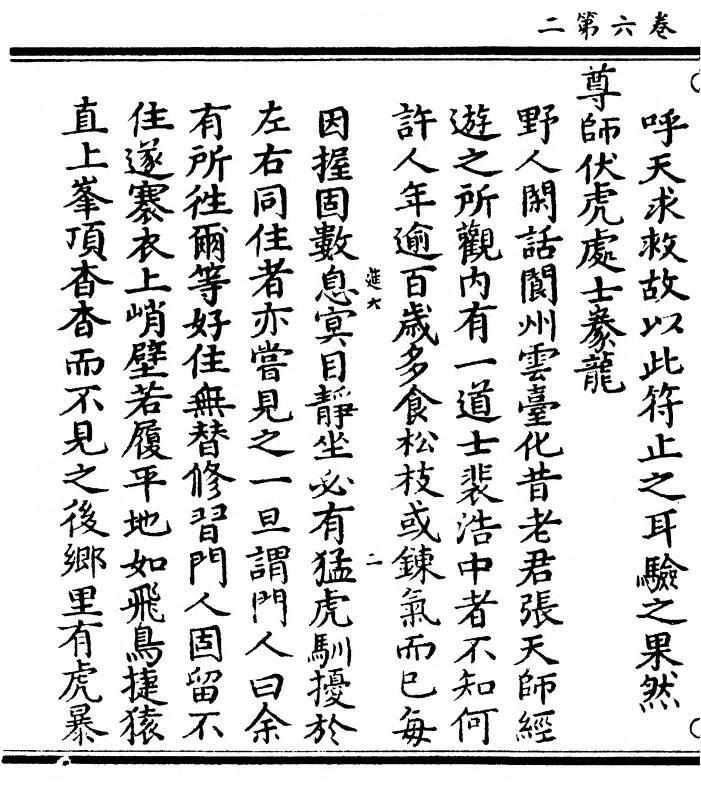 卷六第二
呼天求救故以此符止之耳驗之果然
尊師伏虎處士豢龍
野人閑話閬州雲臺化昔老君張天師經
遊之所觀内有一道士裴浩中者不知何
許人年逾百歳多食松枝或鍊氣而已每
進六
二
因握固數息㝠目靜坐必有猛虎馴擾於
左右同住者亦嘗見之一旦謂門人曰余
有所徃爾等好住無替修習門人固留不
住遂褰衣上峭壁若履平地如飛鳥捷猿
直上峯頂杳杳而不見之後鄉里有虎暴